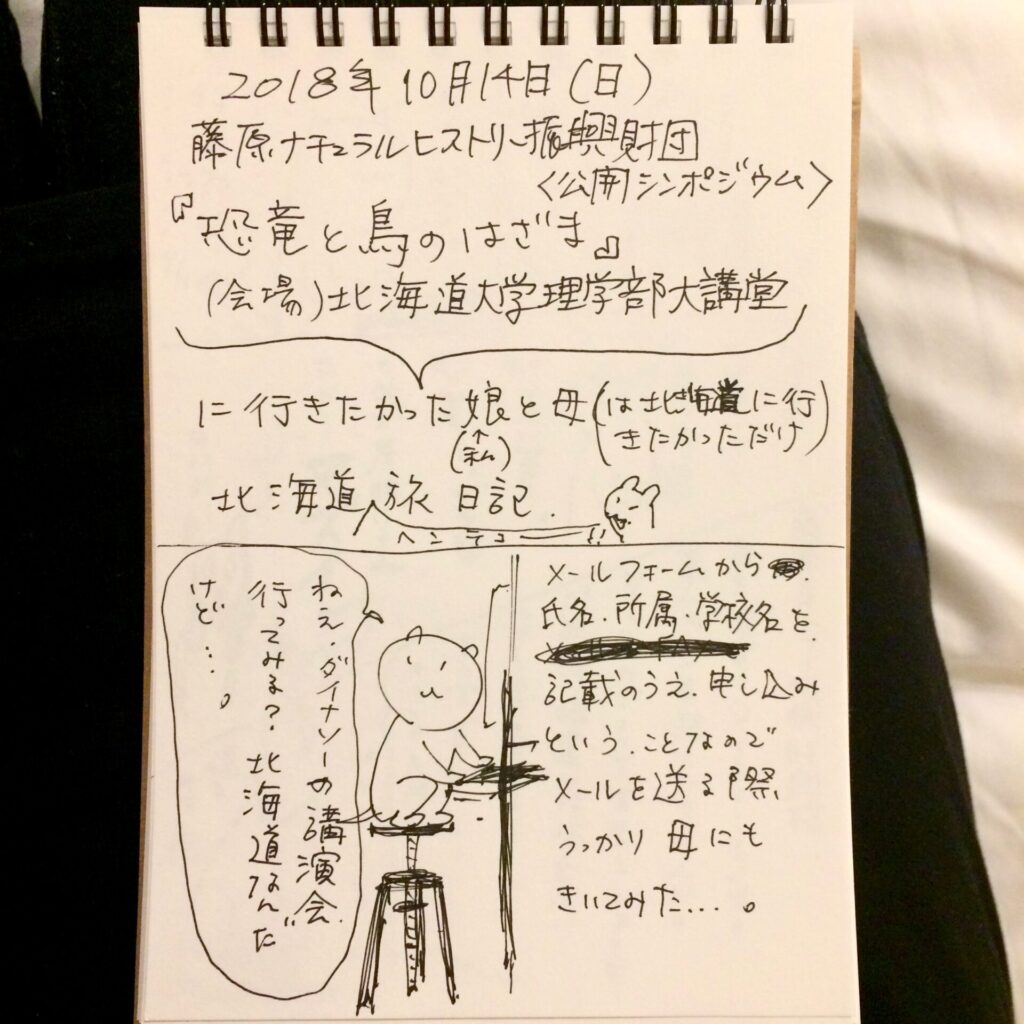 2018年10月14日(日)
藤原ナチュラルヒストリー振興財団
〈公開シンポジウム〉
『恐竜と鳥のはざま』
(会場)北海道大学理学部大講堂
に行きたかった娘と母(は北海道に行
きたかっただけ)
(↑私)
北海道 旅 日記.
ヘンテコ
ねえ、ダイナソーの講演会、
行ってみる? 北海道なんだ
けど…。
メールフォームから
氏名、所属・学校名を、
記載のうえ、申し込み
という、ことなので
メールを送る際
うっかり 母にも
きいてみた…。